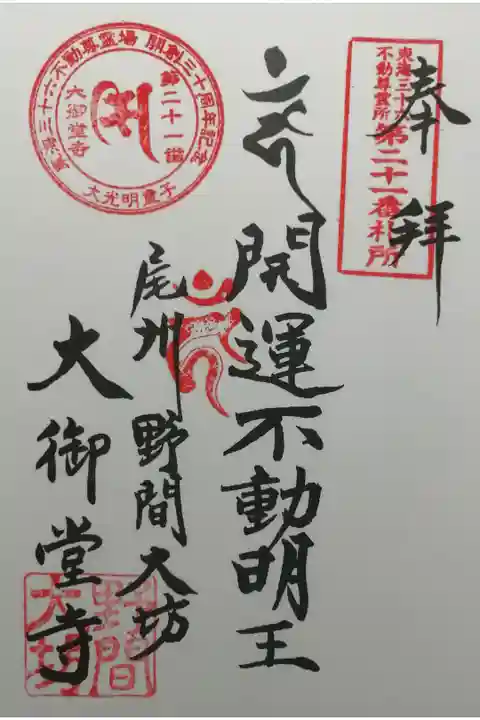 奉拝
東海三十
不動尊霊所
第二十一番札所
開運不動明王
尾州野間大坊
大御堂寺
東海三十六不動尊霊場 開創三十周年記念
第二十一番
大御堂寺
大光明童子
野間
大坊